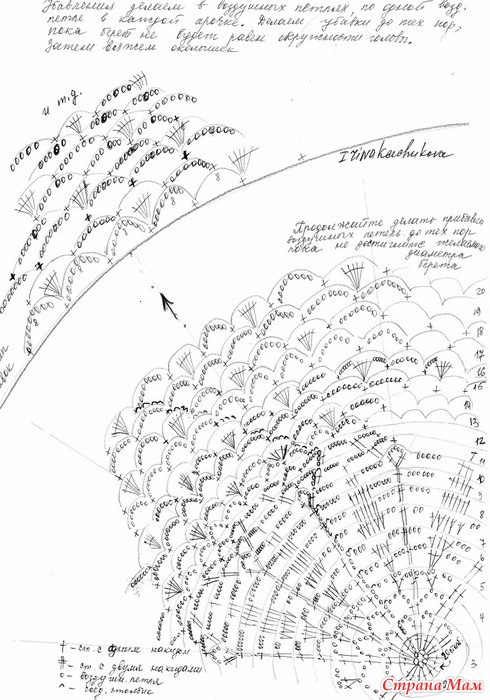 Убавления делаем в воздушных петелях, по одной возд.
петле в каждой арочке. Делаем убавки до тех пор,
пока берет не будет равен окружности головы.
Затем вяжем околышек
и т.д.
8
8
8
Продолжайте делать прибавки
воздушных петель до тех пор
пока не достигните желаемого
диаметра
берета
20
19
18
17
16
15
14
13
12
11
10
9
8
7
6
5
4
3
† - ст. с одним накидом
ст. с двумя накидами
o - воздушн. петля
^ - соед. столбик
Страна Мам